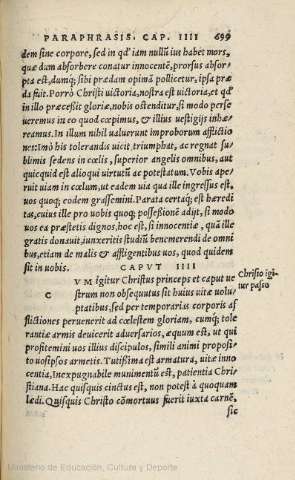 PARAPHRASIS. CAP. IIII 699
dem sine corpore, sed in qd' iam nullũ ius habet mors,
quæ dum absorbere conatur innocentẽ, prorsus absor-
pta est, dumq; sibi prædam opimã pollicetur, ipsa præ
da fuit. Porrò Christi uictoria, nostra est uictoria, et qd'
in illo præcessit gloriæ, nobis ostenditur, si modo perse
ueremus in eo quod cœpimus, & illius uestigijs inhæ-
reamus. In illum nihil ualuerunt improborum afflictio
nes: Imò his tolerandis uicit, triumphat, ac regnat su
blimis sedens in cœlis, superior angelis omnibus, aut
quicquid est alioqui uirtutũ ac potestatum. Vobis ape-
ruit uiam in cœlum, ut eadem uia qua ille ingressus est,
uos quoq; eodem grassemini. Parata certaq; est hæredi
tas, cuius ille pro uobis quoq; possessionẽ adijt, si modo
uos ea præstetis dignos, hoc est, si innocentiæ, quã ille
gratis donauit, iunxeritis studiũ benemerendi de omni
bus, etiam de malis & affligentibus uos, quod quidem
sit in uobis. CAPVT IIII
Christo igi
tur passo
C VM igitur Christus princeps et caput ue
strum non obsequutus sit huius uitæ uolu
ptatibus, sed per temporarias corporis af
flictiones peruenerit ad cœlestem gloriam, cumq; tole
rantiæ armis deuicerit aduersarios, æquum est, ut qui
profitemini uos illius discipulos, simili animi proposi
to uosipsos armetis. Tutissima est armatura, uitæ inno
centia, Inexpugnabile munimentũ est, patientia Chri-
stiana. Hac quisquis cinctus est, non potest à quoquam
lædi. Quisquis Christo cõmortuus fuerit iuxta carnẽ,
sic
Ministerio de Educación, Cultura y Deporte